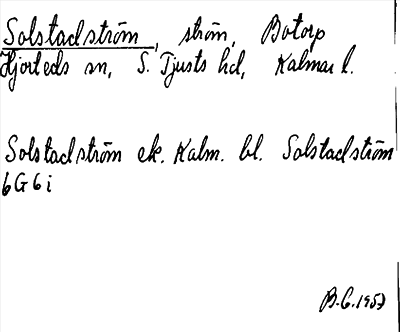 Solstadström, ström, Botorp
Hjorteds sn, S. Tjusts hd, Kalmar l.
Solstadström ek. Kalm. bl. Solstadström
6G6i
B.G.1957